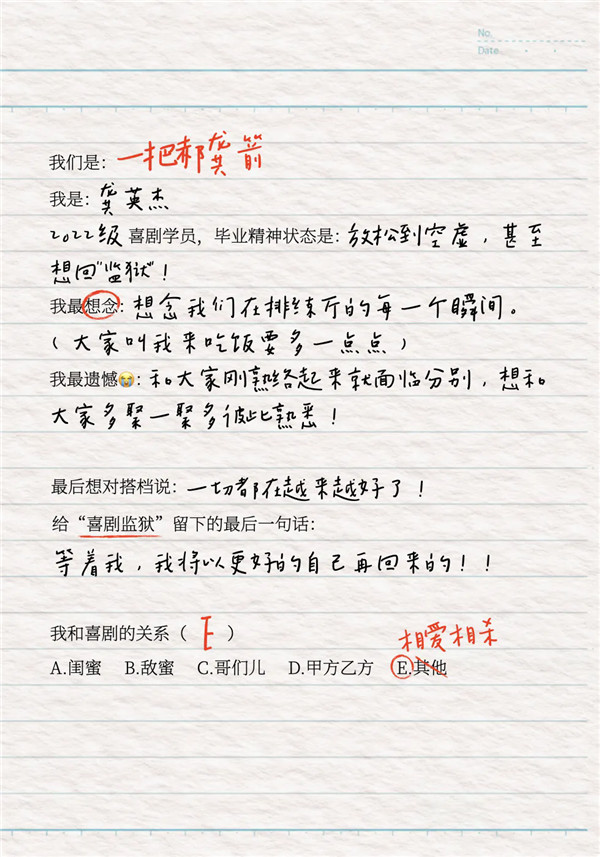 No.
Date
我们是：一把郝龚箭
我是：龚英杰
2022级 喜剧学员，毕业精神状态是：放松到空虚，甚至
想回“监狱”！
我最想念：想念我们在排练厅的每一个瞬间。
（大家叫我来吃饭要多一点点）
我最遗憾😭：和大家刚熟络起来就面临分别，想和
大家多聚一聚多彼此熟悉！
最后想对搭档说：一切都在越来越好了！
给“喜剧监狱”留下的最后一句话：
等着我，我将以更好的自己再回来的！！
相爱相杀
我和喜剧的关系（ E ）
A.闺蜜 B.敌蜜 C.哥们儿 D.甲方乙方 E.其他